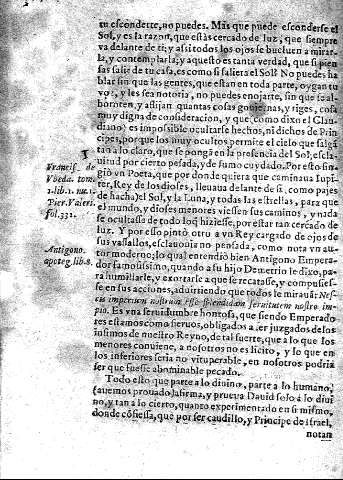 tu escondette, no puedes. Mas que puede esconderse el
Sol, y es la razon, que estàs cercado de luz, que siempre
va delante de ti; y assi todos los ojos se bueluen a mirar-
la, y contemplarla; y aquesto es tanta verdad, que si pien
sas salir de tu casa, es como si saliera el Sol? No puedes ha
blar sin que las gentes, que estàn en toda parte, oygan tu
voz, y les sea notoria, no puedes enojarte, sin que se al-
boroten, y aflijan quantas cosas gouiernas, y riges, cosa
muy digna de consideracion, y que como dixo el Clau-
diano) es impossible ocultarse hechos, ni dichos de Prin
cipes, porque los muy ocultos permite el cielo que salgã
tan a lo claro, que se pongã en la presencia del Sol; es cla-
ritud por cierto pesada, y de sumo cuydado. Por esto fin-
giò vn Poeta, que por donde quiera que caminaua Iupi-
ter, Rey de los dioses, lleuaua delante de si, como pajes
de hacha, el Sol, y la Luna, y todas las estrellas, para que
el mundo, y dioses menores viessen sus caminos, y nada
se ocultasse de todo loq̃ hiziesse, por estar tan cercado de
luz. Y por esso pintò otro a vn Rey cargado de ojos de
sus vassallos, esclauonia no pensada, como nota vn au-
tor moderno; lo qual entendiò bien Antigono Empera-
dor famosissimo, quando a su hijo Demetrio le dixo, pa-
ra humillarle, y exortarle a que se recatasse, y compusies-
se en sus acciones, aduirtiendo que todos le mirauã: Nes-
cis imperium nostrum esse splendidam seruitutem nostro im-
pio. Es vna seruidumbre honrosa, que siendo Emperado
res estamos como sieruos, obligados a ser juzgados de los
infimos de nuestro Reyno, de tal suerte, que a lo que los
menores conuiene, a nosotros no es licito, y lo que en
los inferiores seria no vituperable, en nosotros podria
ser que fuesse abominable pecado.
Todo esto que parte a lo diuino, parte a lo humano,
(auemos prouado) afirma, y prueua Dauid solo a lo diui
no, y tan a lo cierto, quanto experimentado en si mismo,
donde cõfiessa, que por ser caudillo, y Principe de Israel,
notan
Francis. de
Vbeda. tom.
1. lib. 1. nu. 1.
Pier. Valeri.
fol. 331.
Antigono.
apoteg. lib. 8.